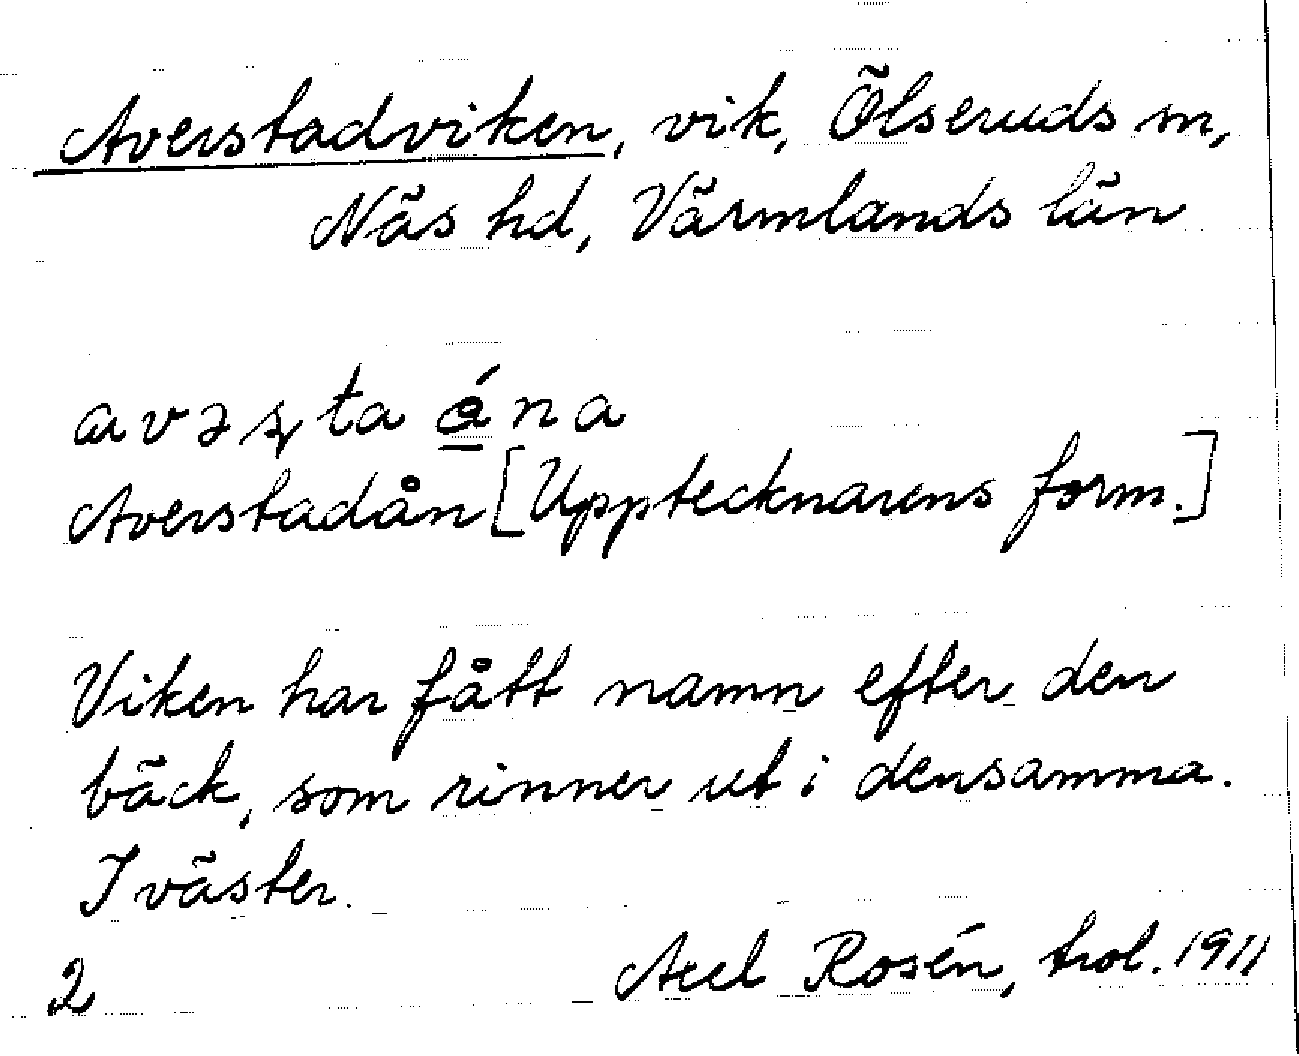 Averstadviken, vik, Ölseruds sn,
Näs hd, Värmlands län
avəʂta ǻna
Averstadån [Upptecknarens form.]
Viken har fått namn efter den
bäck, som rinner ut i densamma.
I väster.
2 Axel Rosén, trol. 1911